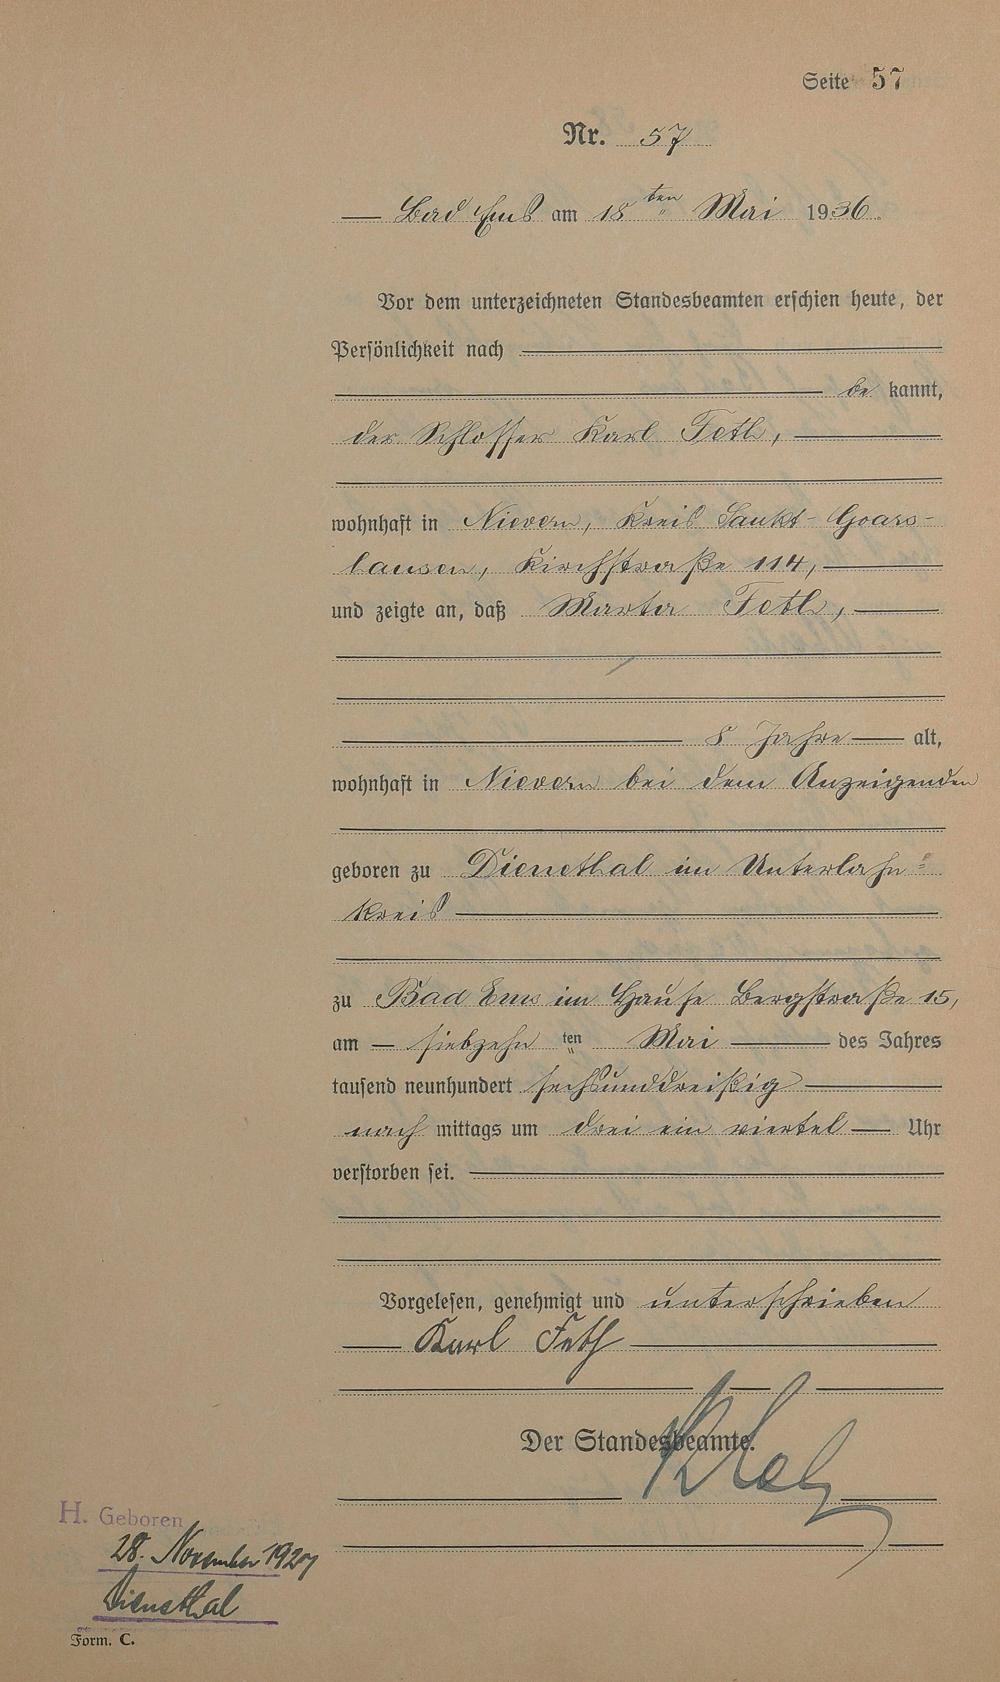 Seite 57
Nr. 57
Bad Ems am 18ten Mai 1936.
Vor dem unterzeichneten Standesbeamten erschien heute, der
Persönlichkeit nach
be kannt,
der Schlosser Karl Feth,
wohnhaft in Nievern, Kreis Sankt-Goars-
hausen, Kirchstraße 114,
und zeigte an, daß Marta Feth,
8 Jahre alt,
wohnhaft in Nievern bei dem Anzeigenden
geboren zu Dienethal im Unterlahn-
kreis
zu Bad Ems im Hause Bergstraße 15,
am siebzehn ten Mai des Jahres
tausend neunhundert sechsunddreißig
nach mittags um drei ein viertel Uhr
verstorben sei.
Vorgelesen, genehmigt und unterschrieben
Karl Feth
Der Standesbeamte.
H. Geboren
28. November 1927
Dienethal
Form. C.